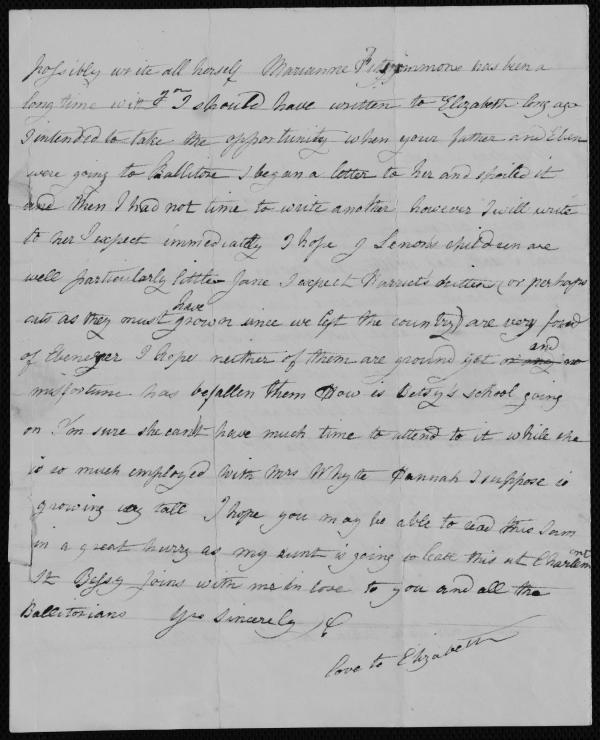 possibly write all herself Marianne Fitzsimmons has been a
long time with Fn I should have written to Elizabeth long ago
I intended to take the opportunity when your father and Eben
were going to Ballitore I began a letter to her and spoiled it
and then I had not time to write another however I will write
to her I expect immediately I hope J Lenon's children are
well particularly little Jane I expect Harriet's kitten (or perhaps
cats as they must have grown since we left the country) are very fond
of Ebenezer I hope neither of them are ground yet or any and no
misfortune has befallen them How is Betsy's school going
on I'm sure she cant have much time to attend to it while she
is so much employed with Mrs Whyte Hannah I suppose is
growing very tall I hope you may be able to read this I am
in a great hurry as my aunt is going to leave this at Charlemnt
St Bessy joins with me in love to you and all the
Ballitorians Yrs Sincerely &
love to Elizabeth